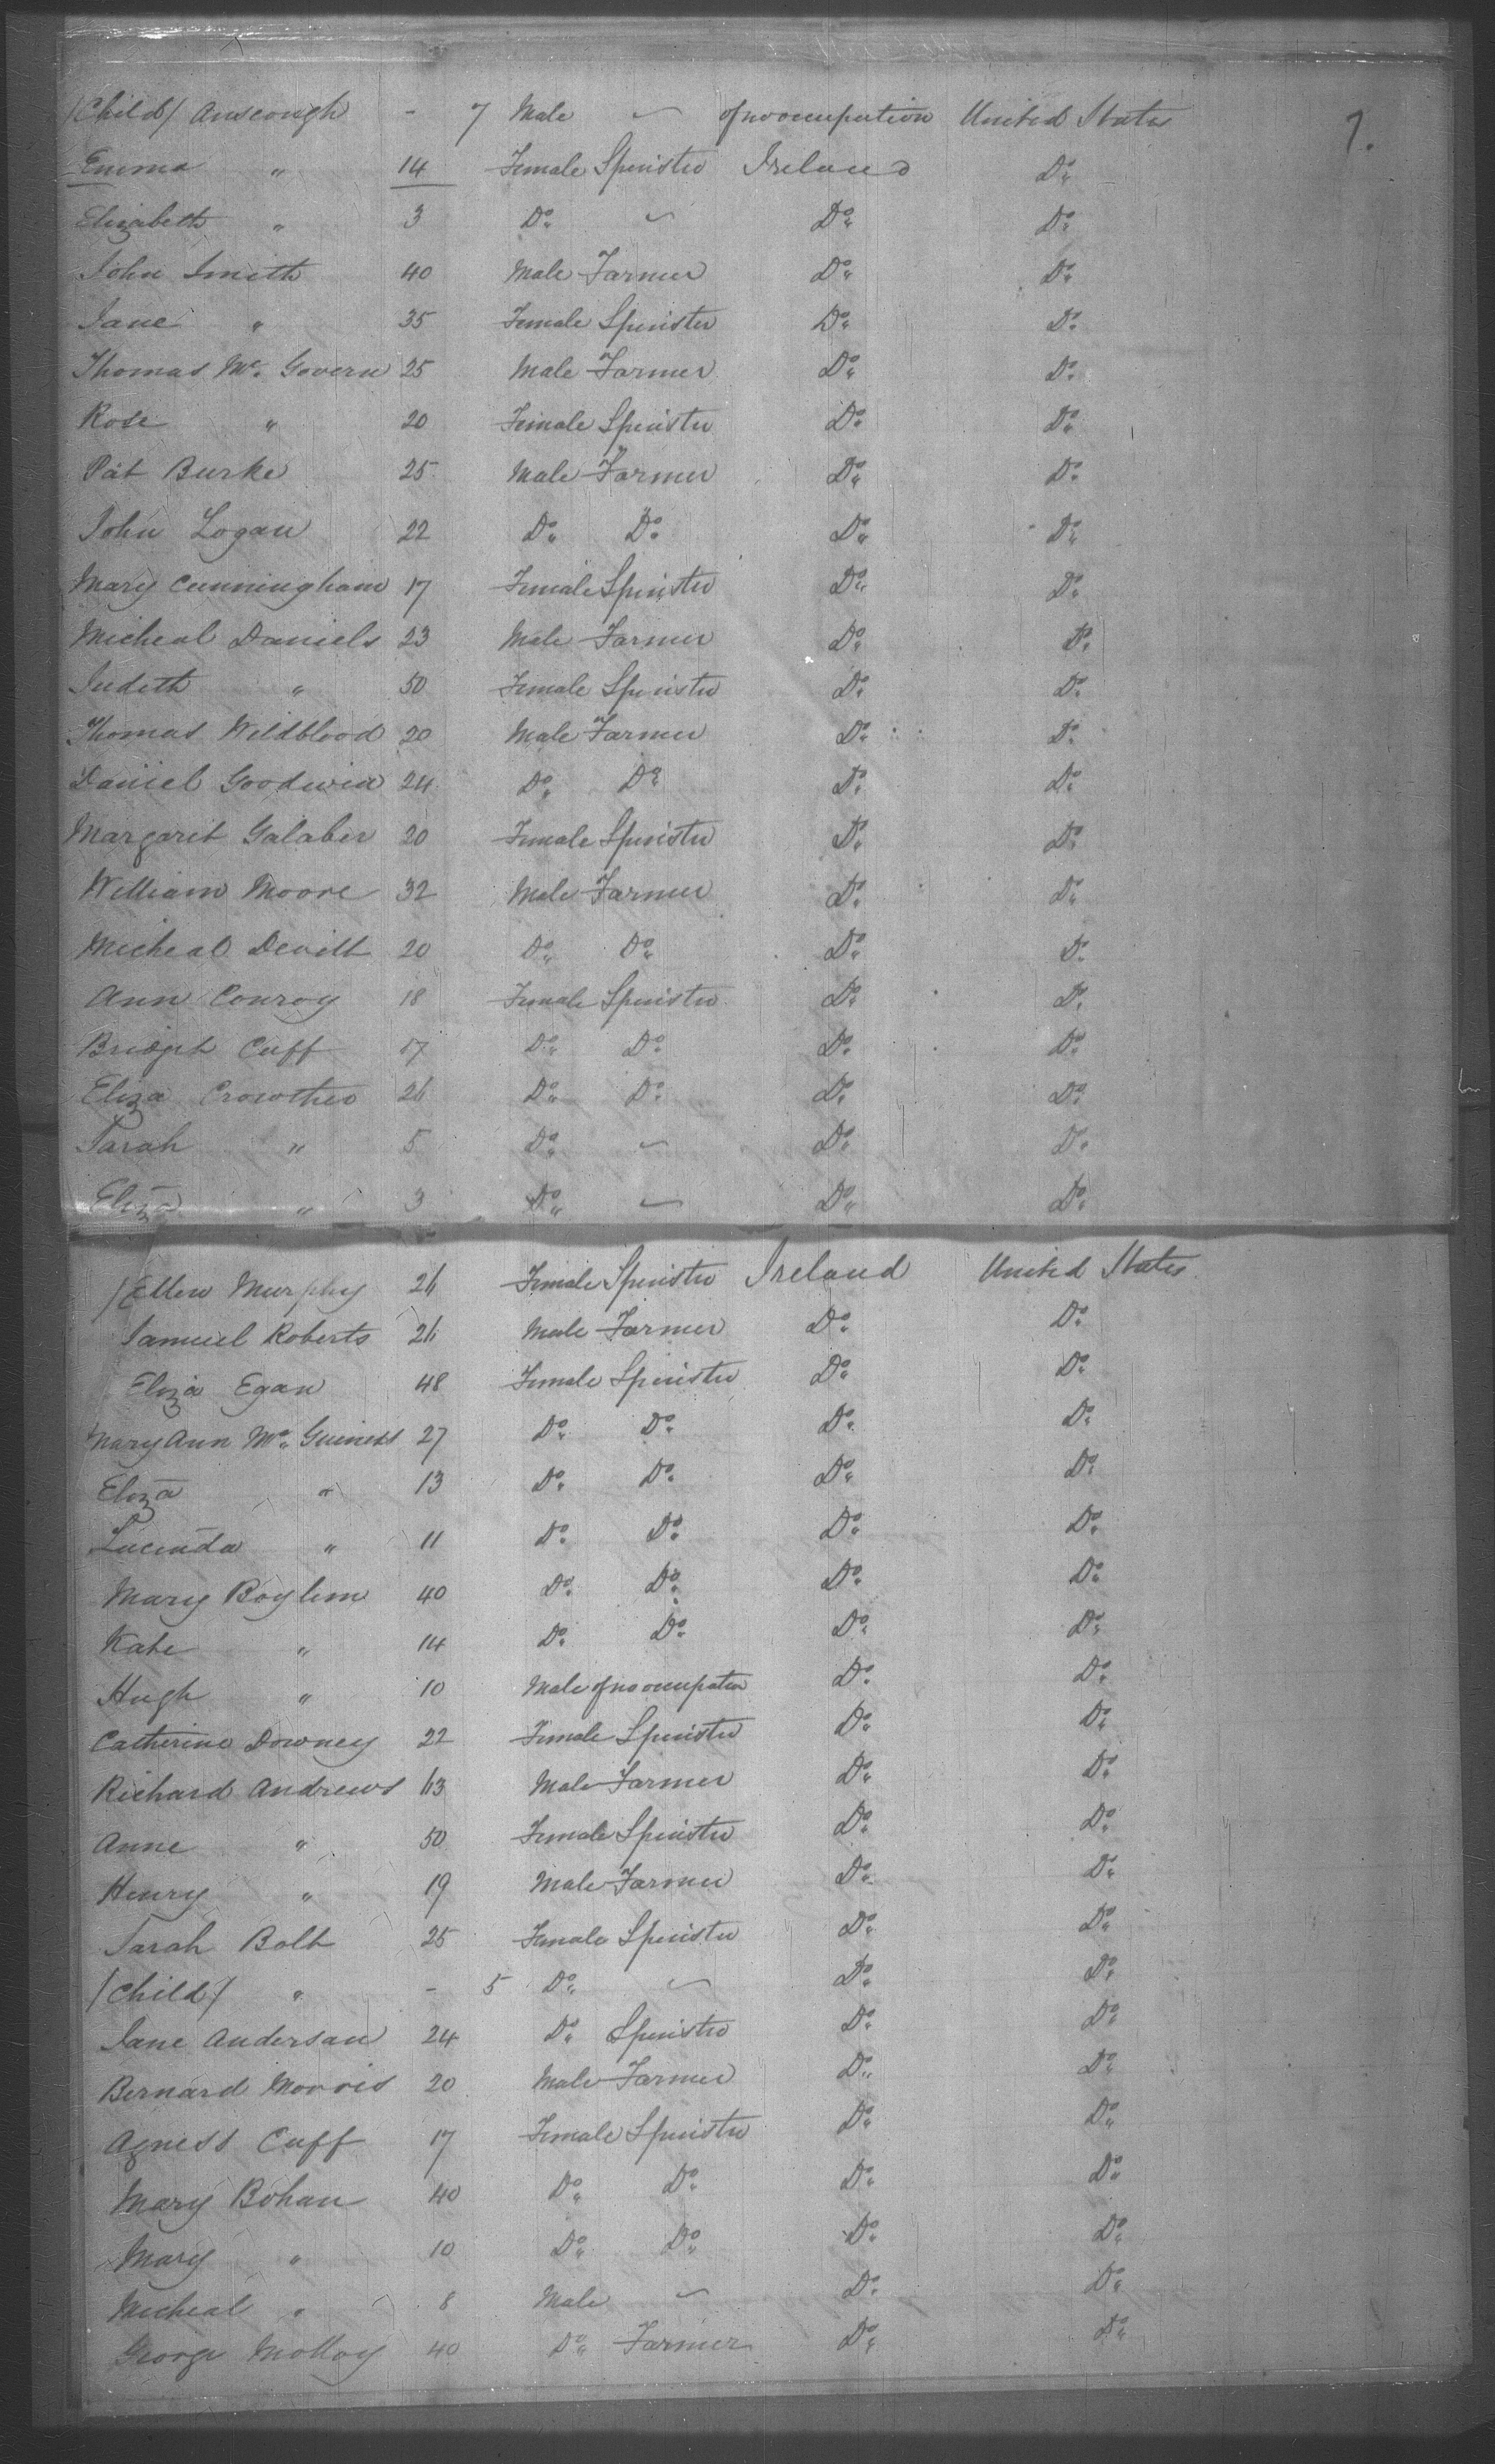 /Child/ Anscough - 7 Male ~ of no occupation United States 7.
Emma " 14 Female Spinster Ireland Do.
Elizabeth " 3 Do. ~ Do. Do.
John Smith 40 Male Farmer Do. Do.
Jane " 35 Female Spinster Do. Do.
Thomas Mc. Govern 25 Male Farmer Do. Do.
Rose " 20 Female Spinster Do. Do.
Pat Burke 25 Male Farmer Do. Do.
John Logan 22 Do. Do. Do. Do.
Mary Cunningham 17 Female Spinster Do. Do.
Micheal Daniels 23 Male Farmer Do. Do.
Judith " 50 Female Spinster Do. Do.
Thomas Wildblood 20 Male Farmer Do. Do.
Daniel Goodwin 24 Do. Do. Do. Do.
Margaret Galaber 20 Female Spinster Do. Do.
William Moore 32 Male Farmer Do. Do.
Micheal Devitt 20 Do. Do. Do. Do.
Ann Conroy 18 Female Spinster Do. Do.
Bridget Cuff 17 Do. Do. Do. Do.
Eliza Crowther 26 Do. Do. Do. Do.
Sarah " 5 Do. ~ Do. Do.
Eliza " 3 Do. ~ Do. Do.
/Ellen Murphy 26 Female Spinster Ireland United States
Samuel Roberts 26 Male Farmer Do. Do.
Eliza Egan 48 Female Spinster Do. Do.
Mary Ann Mc. Guiness 27 Do. Do. Do. Do.
Eliza " 13 Do. Do. Do. Do.
Lucinda " 11 Do. Do. Do. Do.
Mary Boylem 40 Do. Do. Do. Do.
Kate " 14 Do. Do. Do. Do.
Hugh " 10 Male of no occupation Do. Do.
Catherine Downey 22 Female Spinster Do. Do.
Richard Andrews 63 Male Farmer Do. Do.
Anne " 50 Female Spinster Do. Do.
Henry " 19 Male Farmer Do. Do.
Sarah Bolt 25 Female Spinster Do. Do.
/Child/ " - 5 Do. ~ Do. Do.
Jane Andersan 24 Do. Spinster Do. Do.
Bernard Morris 20 Male Farmer Do. Do.
Agness Cuff 17 Female Spinster Do. Do.
Mary Bohan 40 Do. Do. Do. Do.
Mary " 10 Do. Do. Do. Do.
Micheal " 8 Male ~ Do. Do.
George Molloy 40 Do. Farmer Do. Do.